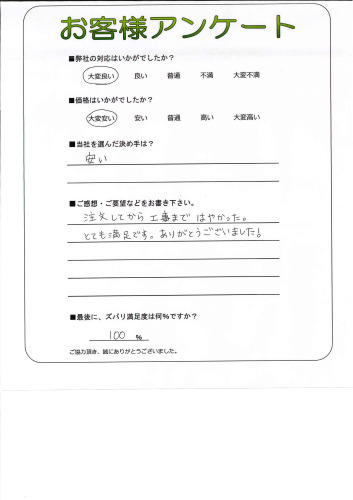 お客様アンケート
■弊社の対応はいかがでしたか?
大変良い 良い 普通 不満 大変不満
■価格はいかがでしたか?
大変安い 安い 普通 高い 大変高い
■当社を選んだ決め手は?
安い
■ご感想・ご要望などをお書き下さい。
注文してから工事まではやかった。
とても満足です。ありがとうございました!
■最後に、ズバリ満足度は何%ですか?
100 %
ご協力頂き、誠にありがとうございました。